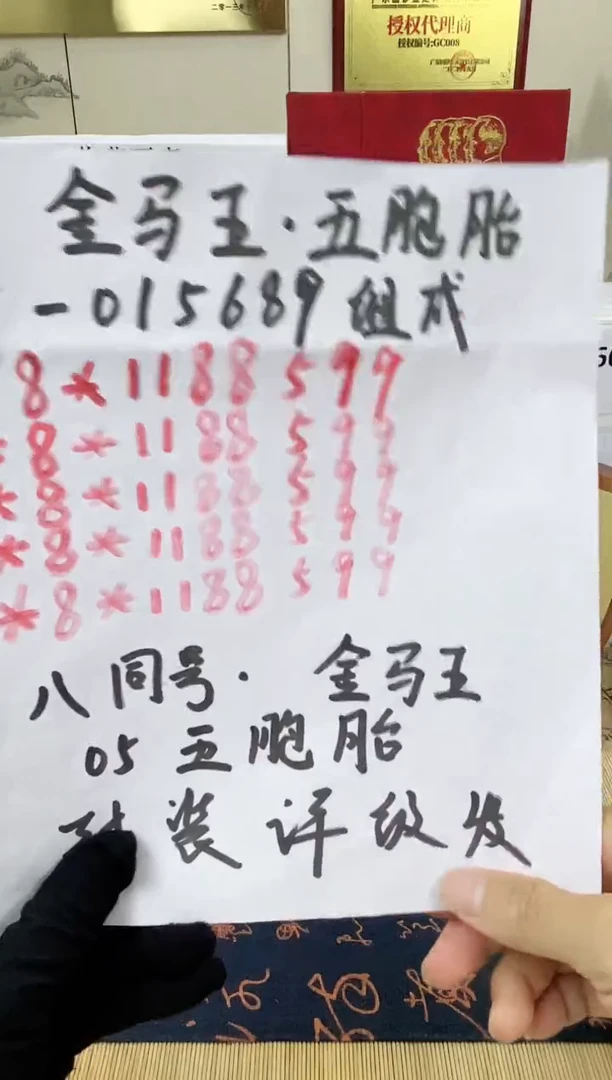 二零一三年
授权代理商
授权编号:GC008
金马王·五胞胎
-015689组成
8*1188599
*8*1188599
*8*1188599
*8*1188599
*8*1188599
八同号·金马王
05五胞胎
装评级发